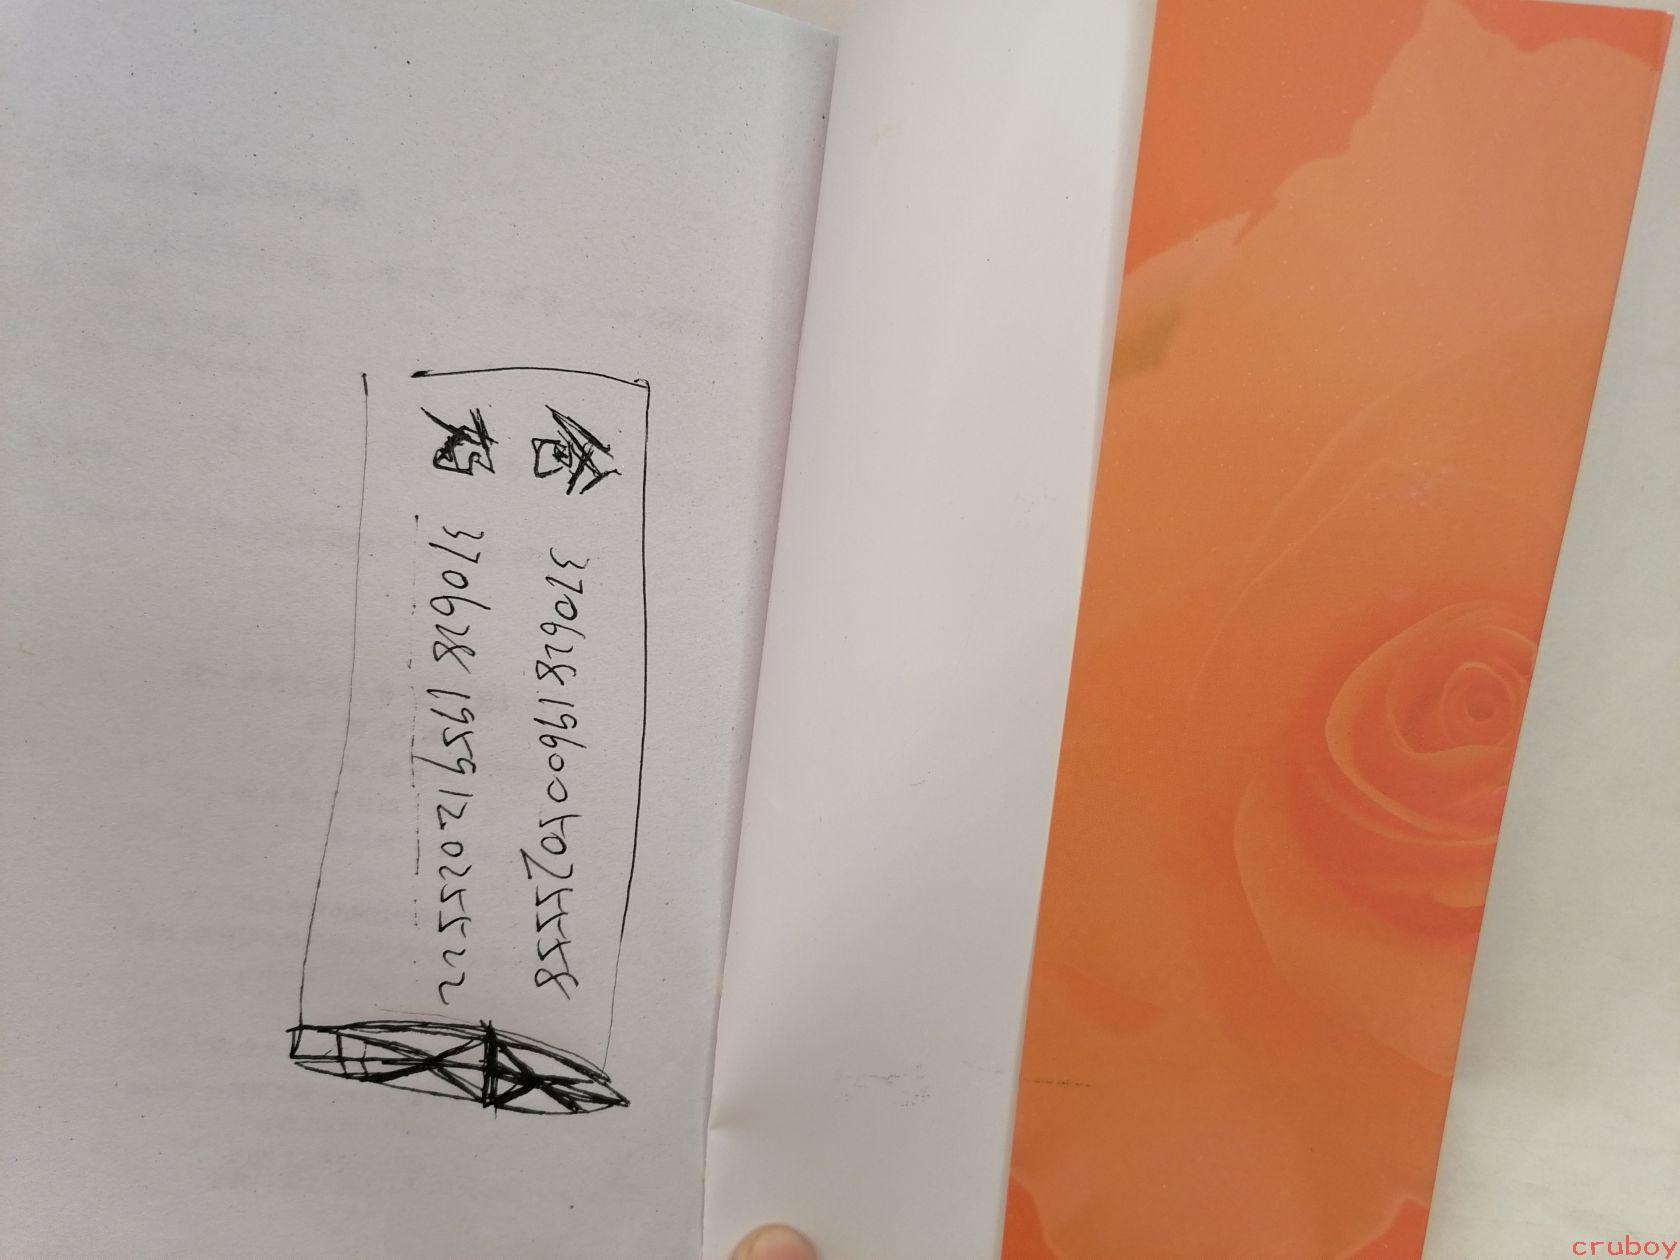 370628196005025558
370628195912025522
cruboy